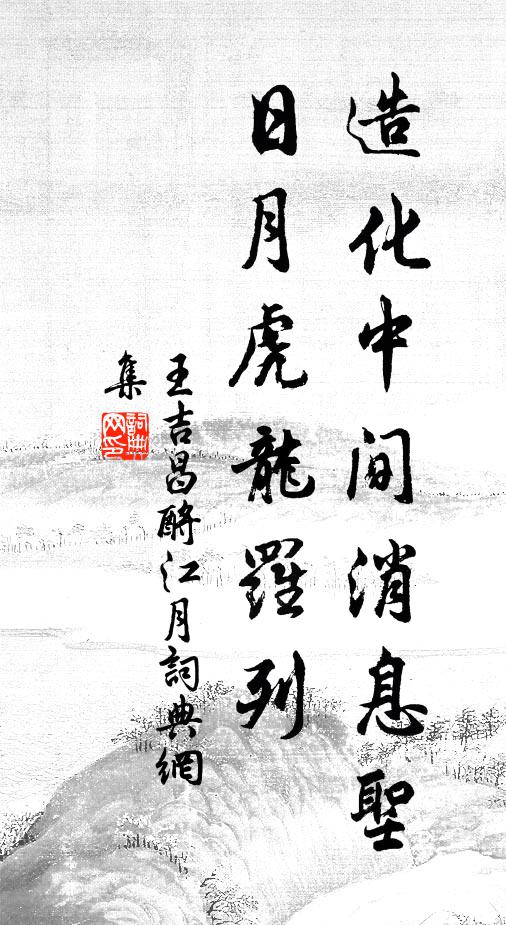 造化中間消息聖
日月虎龍羅列
王吉昌酹江月詞典網
集
詞典網印